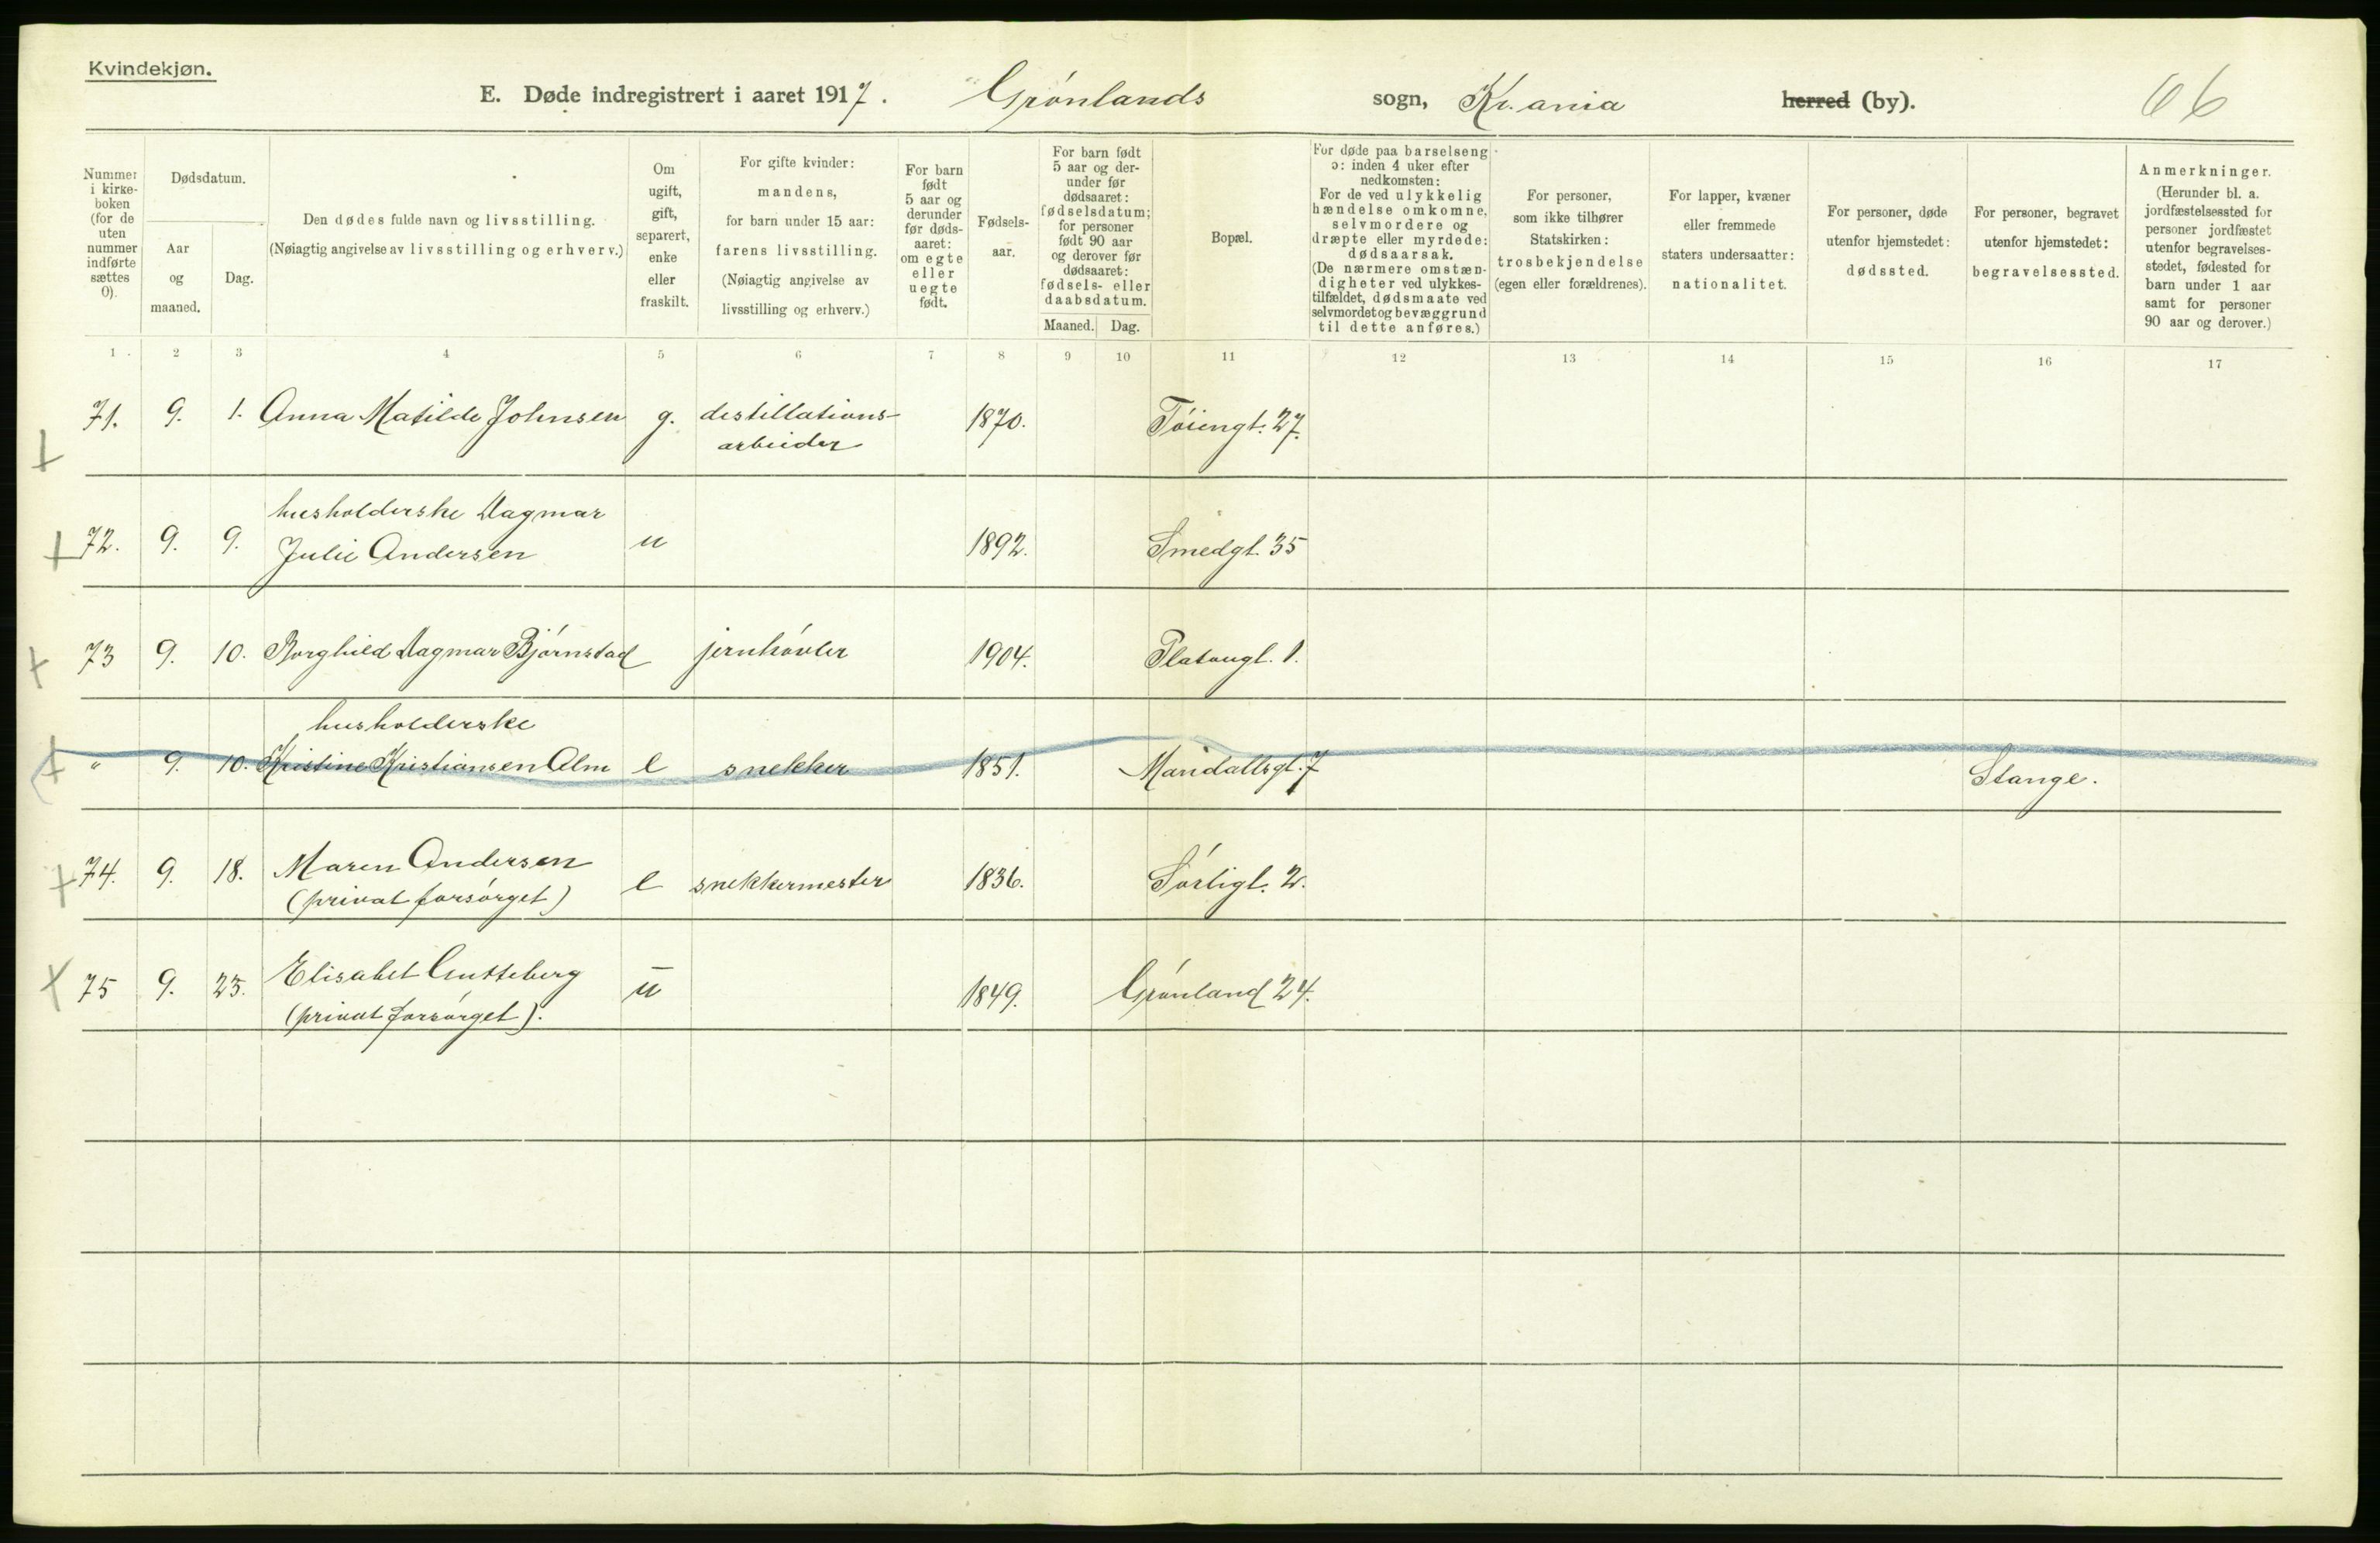 Kvindekjøn.
E. Døde indregistrert i aaret 1917. Grønlands sogn, Kr.ania herred (by). 66
Nummer
i kirke-
boken
(for de
uten
nummer
indførte
sættes
0).
Dødsdatum.
Aar
og
maaned.
Dag.
Den dødes fulde navn og livsstilling.
(Nøiagtig angivelse av livsstilling og erhverv.)
Om
ugift,
gift,
separert,
enke
eller
fraskilt.
For gifte kvinder:
mandens,
for barn under 15 aar:
farens livsstilling.
(Nøiagtig angivelse av
livsstilling og erhverv.)
For barn
født
5 aar og
derunder
før døds-
aaret:
om egte
eller
uegte
født.
Fødsels-
aar.
For barn født
5 aar og der-
under før
dødsaaret:
fødselsdatum;
for personer
født 90 aar
og derover før
dødsaaret:
fødsels- eller
daabsdatum.
Maaned. Dag.
Bopæl.
For døde paa barselseng
ɔ: inden 4 uker efter
nedkomsten:
For de ved ulykkelig
hændelse omkomne,
selvmordere og
dræpte eller myrdede:
dødsaarsak.
(De nærmere omstæn-
digheter ved ulykkes-
tilfældet, dødsmaate ved
selvmordet og bevæggrund
til dette anføres.)
For personer,
som ikke tilhører
Statskirken:
trosbekjendelse
(egen eller forældrenes).
For lapper, kvæner
eller fremmede
staters undersaatter:
nationalitet.
For personer, døde
utenfor hjemstedet:
dødssted.
For personer, begravet
utenfor hjemstedet:
begravelsessted.
Anmerkninger.
(Herunder bl. a.
jordfæstelsessted for
personer jordfæstet
utenfor begravelses-
stedet, fødested for
barn under 1 aar
samt for personer
90 aar og derover.)
1 2 3 4 5 6 7 8 9 10 11 12 13 14 15 16 17
71. 9. 1. Anna Matilde Johnsen g. destillations- 1870. Tøiengt. 27.
arbeider
husholderske Dagmar
72. 9. 9. Julie Andersen u 1892. Smedgt. 35
73 9. 10. Borghild Dagmar Bjørnstad jernhøvler 1904. Platougt. 1.
husholderske
" 9. 10. Kristine Kristiansen Alm e snekker 1851. Maridallsgt. 7 Stange.
74. 9. 18. Maren Andersen e snekkermester 1836. Sørligt. 2.
(privat forsørget)
75 9. 23. Elisabet Gutteberg u 1849. Grønland 24.
(privat forsørget).